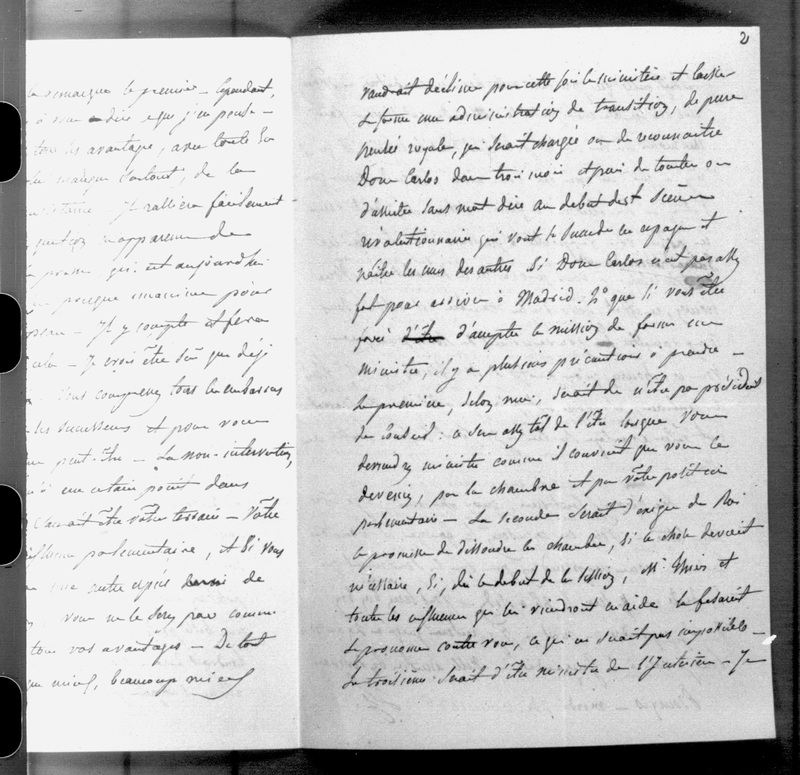 la remarque le premier - Cependant,
dire ce que j'en pense -
tous les avantages, avec toute la
surtout, de la
Il ralliera facilement
apparence de
la presse qui est aujourd'hui
pour
Il y compte et fera
cela - Je crois être sûr que déjà
Vous comprenez tous les embarras
les successeurs et pour vous
peut-être - La non-intervention,
à un certain point dans
être votre terrain - Votre
influence parlementaire, et si vous
une autre espèce de
vous ne le serez pas comme
tous vos avantages - De tout
mieux, beaucoup mieux
2
vaudrait décliner pour cette fois le ministère et laisser
se former une administration de transition, de pure
pensée royale, qui serait chargée ou de reconnaitre
Don Carlos dans trois mois et puis de tomber ou
d'assister sans mot dire au début des scènes
révolutionnaires qui vont se succéder en espagne et
naître les unes des autres si Don Carlos n'est pas assez
fort pour arriver à Madrid. 2º que si vous êtes
forcé d'être d'accepter la mission de former un
ministère, il y a plusieurs précautions à prendre -
La première, selon moi, serait de n'être pas président
du Conseil : ce sera assez tôt de l'être lorsque vous
deviendrez ministre comme il convient que vous le
deveniez, par la chambre et par votre position
parlementaire - La seconde serait d'exiger du Roi
la promesse de dissoudre la chambre, si la chose devenait
nécessaire, si, dès le début de la session, Mr Thiers et
toutes les influences qui lui viendront en aide la faisaient
se prononcer contre vous, ce qui ne serait pas impossible -
La troisième serait d'être ministre de l'Intérieur - Je